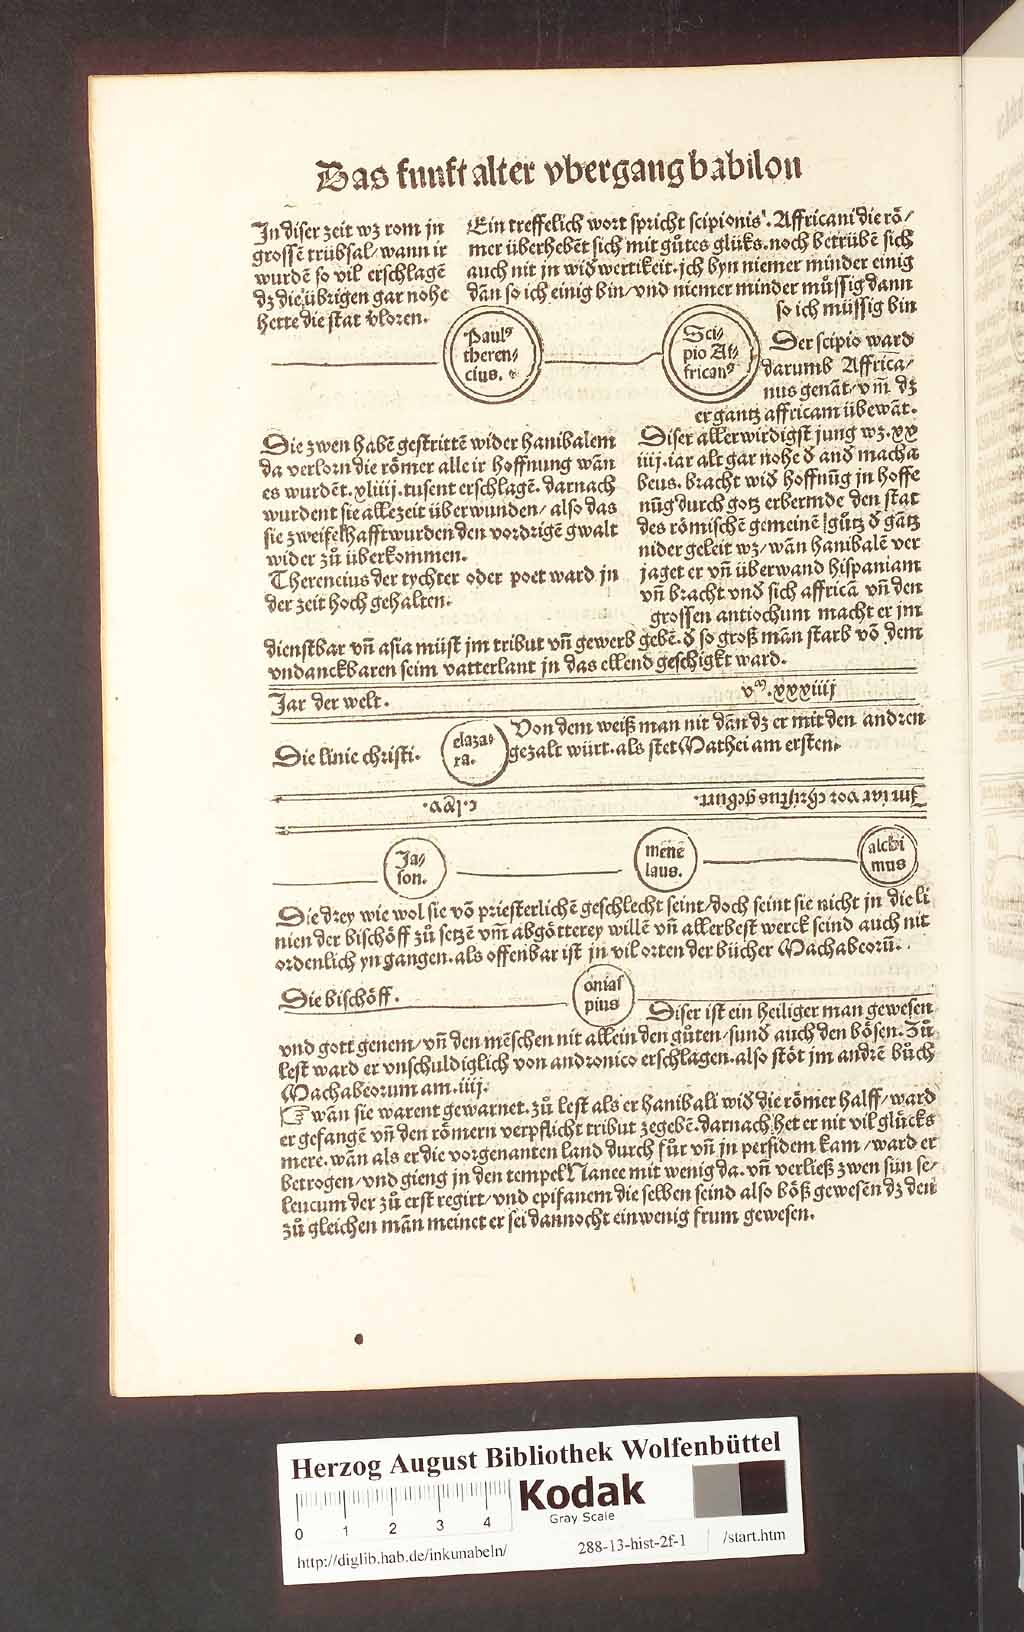 Das funft alter vbergang babilon
In diser zeit wz rom jn
grossē trübsal/ wann ir
wurdē so vil erschlagē
dz die übrigen gar nohe
hette die stat v̄lozen.
Ein treffelich wort spricht scipionis'. Affricani die rö/
mer überhebēt sich mit gůtes glüks. noch betrübē sich
auch nit jn wid wertikeit. jch byn niemer minder einig
dān so ich einig bin/ vnd niemer minder můssig dann
so ich müssig bin
Paulꝰ
theren/
cius.
Sci/
pio Af/
fricanꝰ
Der scipio ward
darumb Affrica/
nus genāt/ vm̄ dz
er gantz affricam übewāt.
Die zwen habē gestrittē wider hanibalem
da verlorn die römer alle ir hoffnung wān
es wurdēt. xliiij. tusent erschlagē. darnach
wurdent sie allezeit überwunden/ also das
sie zweifelhafft wurden den vordrigē gwalt
wider zů überkommen.
Therencius der tychter oder poet ward jn
der zeit hoch gehalten.
Diser allerwirdigst jung wz. xx
iiij. iar alt gar nohe d and macha
beus. bracht wid hoffnūg jn hoffe
nūg durch gotz erbermde den stat
des römischē gemeinē gůtz d gātz
nider geleit wz/ wān hanibalē ver
jaget er vn̄ überwand hispaniam
vn̄ bracht vnd sich affricā vn̄ den
grossen antiochum macht er jm
dienstbar vn̄ asia müst jm tribut vn̄ gewerb gebē. d so groß mān starb vō dem
vndanckbaren seim vatterlant jn das ellend geschigkt ward.
Jar der welt.
vᵐ. xxxiiij
Die linie christi.
elaza/
ra.
Von dem weiß man nit dān dz er mit den andren
gezalt würt. als stet Mathei am ersten.
Im iar vor christus geburt.
c.lxv.
Ja/
son.
menē
laus.
alchi
mus
Die drey wie wol sie vō priesterlichē geschlecht seint/ doch seint sie nicht jn die li
nien der bischöff zů setzē vm̄ abgötterey willē vn̄ allerbest werck seind auch nit
ordenlich yn gangen. als offenbar ist jn vil orten der bücher Machabeorū.
Die bischöff.
onias
pius
Diser ist ein heiliger man gewesen
vnd gott genem/ vn̄ den mēschen nit allein den gůten/ sund auch den bösen. Zů
lest ward er vnschuldiglich von andronico erschlagen. also stöt jm andrē bůch
Machabeorum am. iiij.
☞ wān sie warent gewarnet. zů lest als er hanibali wid die römer halff/ ward
er gefangē vn̄ den römern verpflicht tribut zegebē. darnach het er nit vil glücks
mere. wān als er die vorgenanten land durch fůr vn̄ jn persidem kam/ ward er
betrogen/ vnd gieng jn den tempel Nanee mit wenig da. vn̄ verließ zwen sün se/
leucum der zů erst regirt/ vnd epifanem die selben seind also böß gewesen dz den
zů gleichen mān meinet er sei dannocht ein wenig frum gewesen.
Herzog August Bibliothek Wolfenbüttel
0 1 2 3 4
Kodak
Gray Scale
http://diglib.hab.de/inkunabeln/
288-13-hist-2f-1
/start.htm